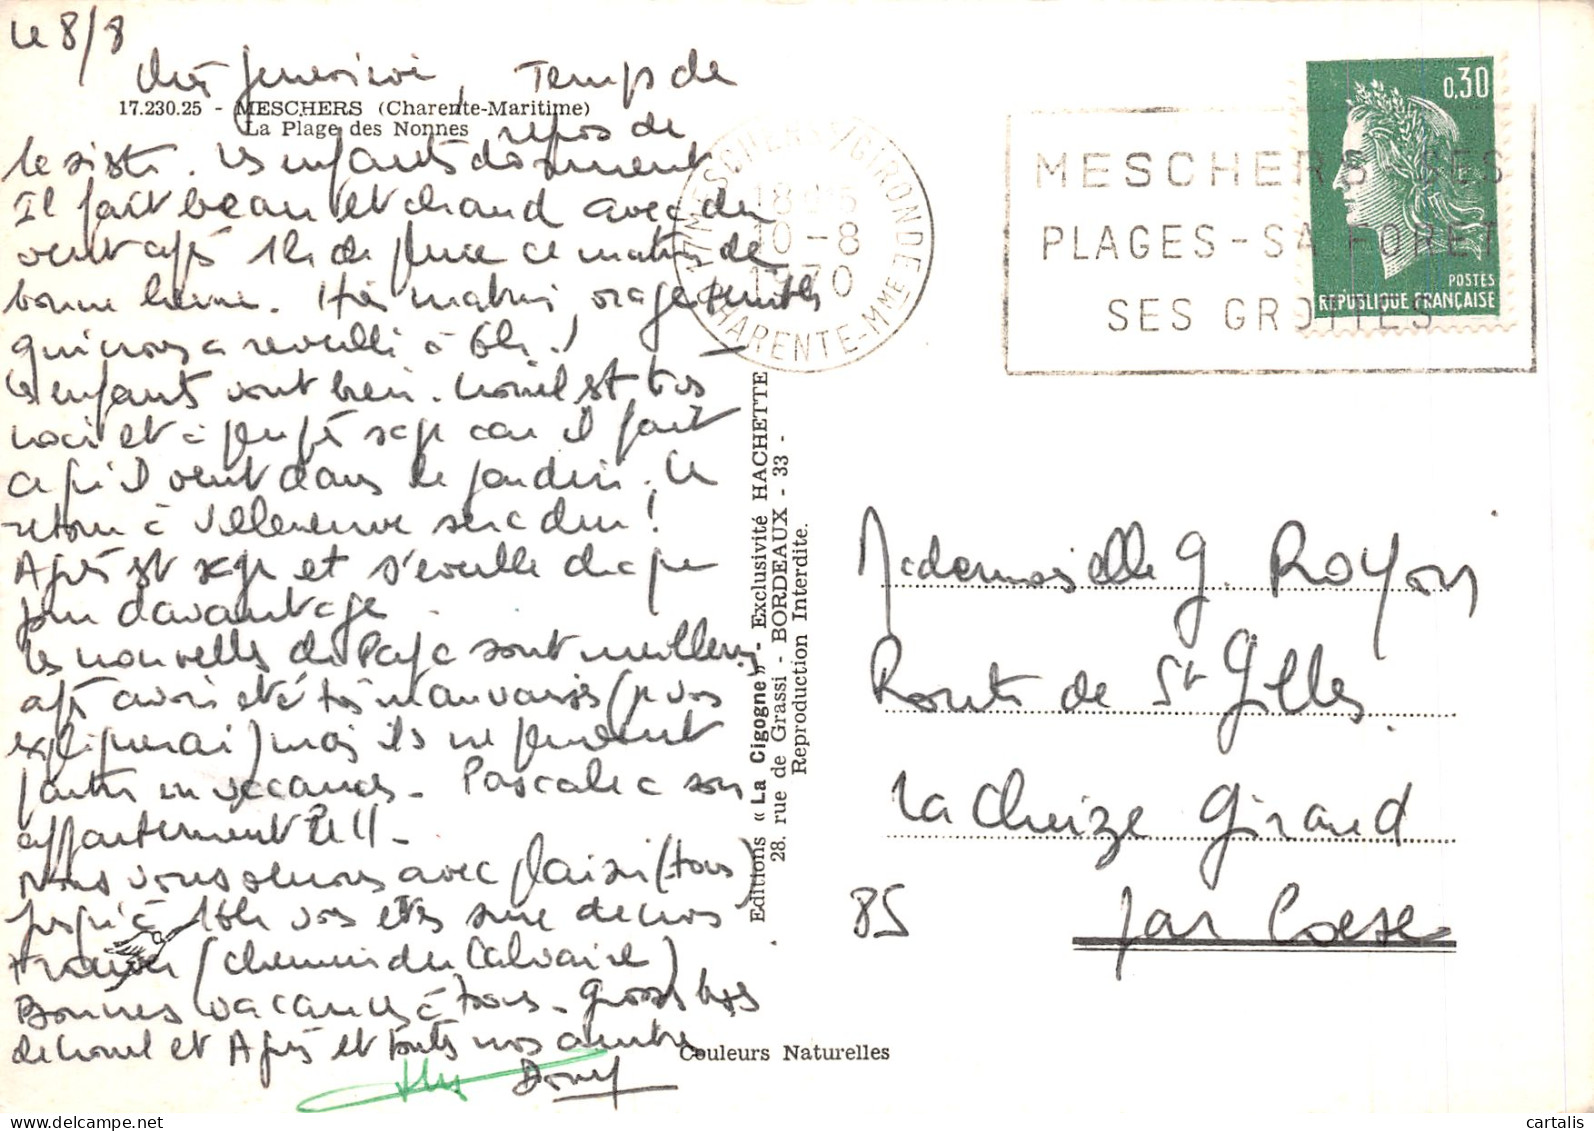 Le 8/8
Chère Geneviève, Temps de
17.230.25 - MESCHERS (Charente-Maritime)
La Plage des Nonnes
repos de
la sieste. Les enfants dorment
Il fait beau et chaud avec du
vent après 1h de pluie ce matin de
bonne heure. Hier matin, orage terrible
qui nous a réveillé à 6h !
Les enfants vont bien. Lionel est très
et à peu près sage car il fait
ce qu'il veut dans le jardin. Le
retour à Villeneuve sera dur !
Agnès est sage et s'éveille chaque
jour davantage
Les nouvelles de Papa sont meilleures
après avoir été très mauvaises (je vous
expliquerai) mais ils ne peuvent
partir en vacances - Pascale a son
appartement
Nous vous verrons avec plaisir (tous)
jusqu'à 16h vos êtes sure de nos
trouver (chemin du Calvaire)
Bonnes vacances à tous - Grosses bises
de Lionel et Agnès et toutes nos amitiés
Dany
Couleurs Naturelles
Editions « La Cigogne » - Exclusivité HACHETTE
28, rue de Grassi - BORDEAUX - 33 -
Reproduction Interdite.
17 MESCHERS S/GIRONDE
18H15
10-8
1970
CHARENTE-MME
MESCHERS SES
PLAGES - SA FORET
SES GROTTES
0,30
POSTES
REPUBLIQUE FRANÇAISE
Mademoiselle G. Royon
Route de St Gilles
La Chaize Giraud
85 par Coëx